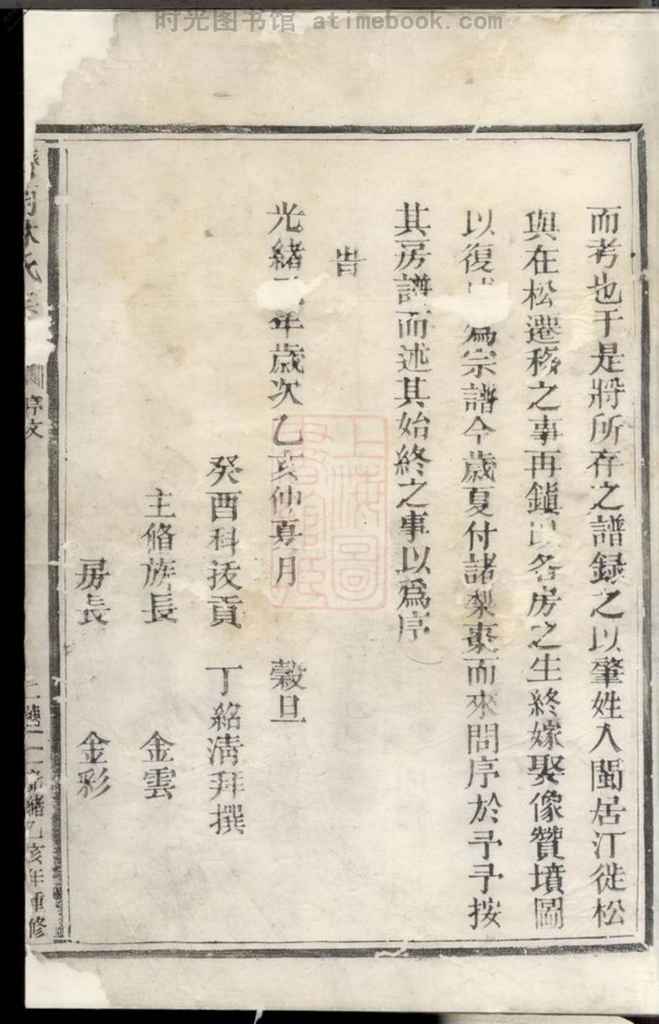 时光图书馆 atimebook.com
而考也于是將所存之譜録之以肇姓入閩居汀徙松
與在松遷移之事再鎖以各房之生終嫁娶像贊墳圖
以復 為宗譜今歲夏付諸梨棗而來問序於予予按
其房譜而述其始終之事以爲序
旹
光緒 年歲次乙亥仲夏月 穀旦
癸酉科拔貢 丁紹淸拜撰
主脩族長 金雲
房長 金彩
林氏 序文 光緒乙亥年重修
上海圖